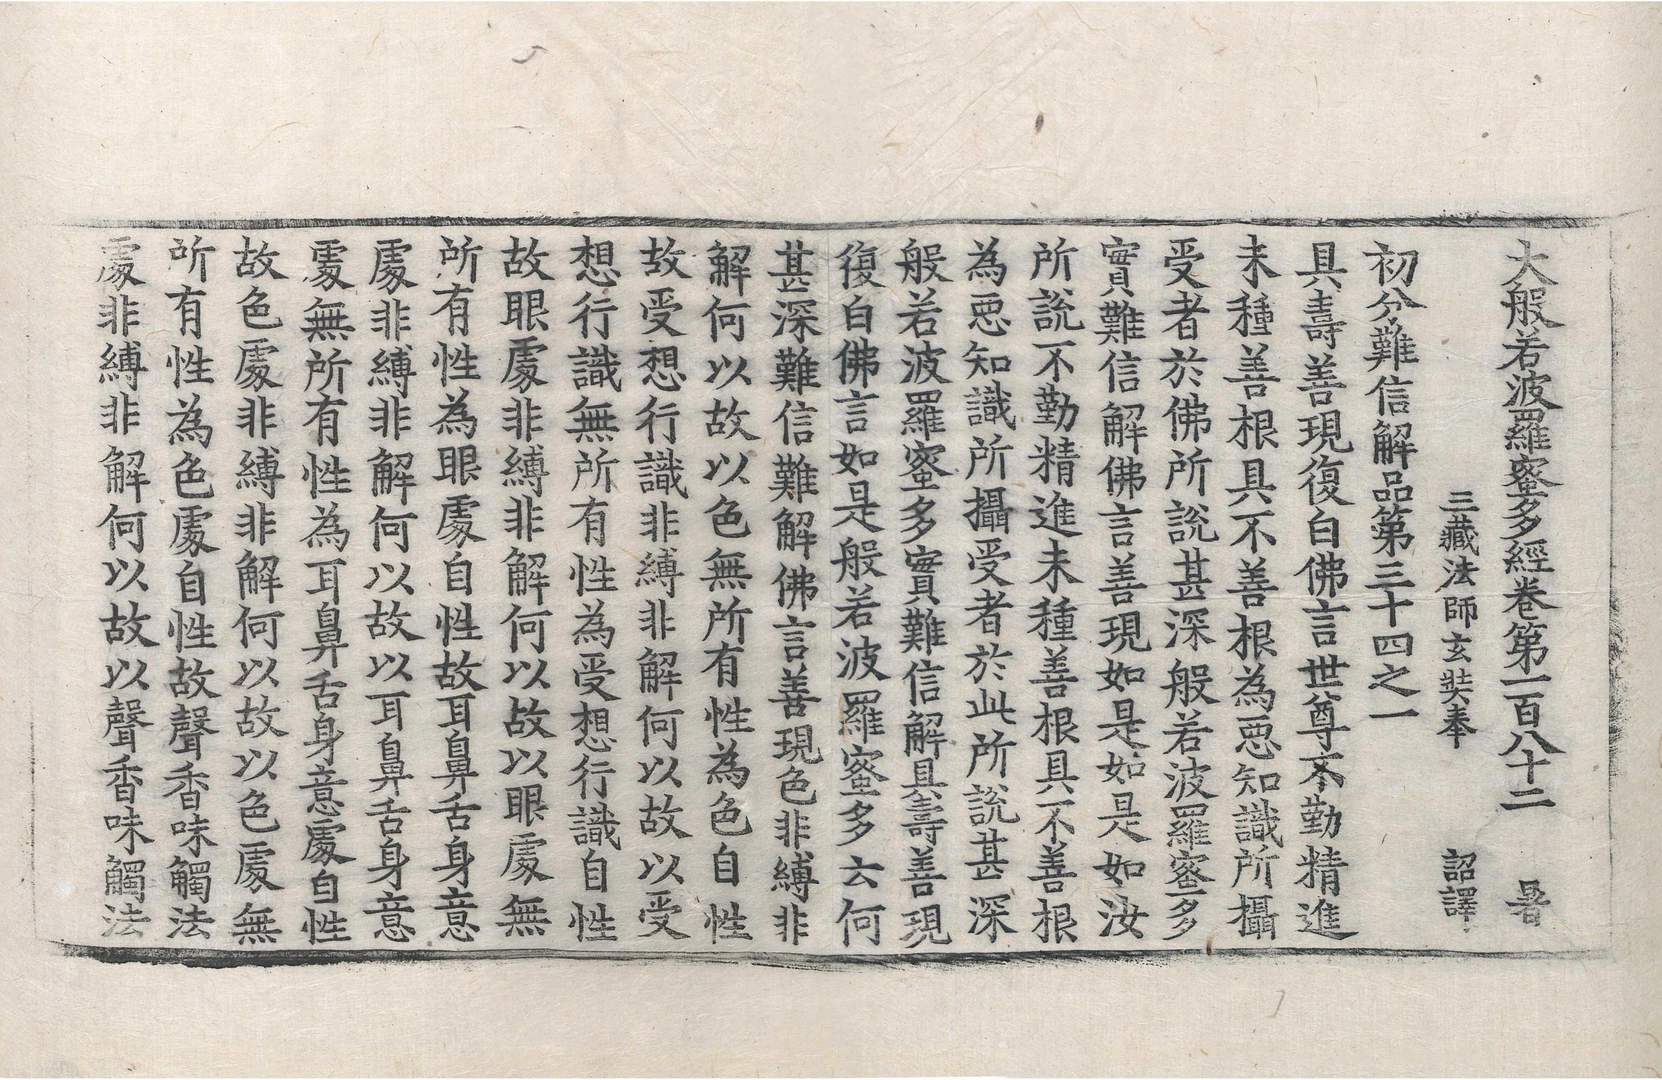 大般若波羅蜜多經卷第一百八十二 暑
三藏法師玄奘奉 詔譯
初分難信解品第三十四之一
具壽善現復白佛言世尊不勤精進
未種善根具不善根為惡知識所攝
受者於佛所說甚深般若波羅蜜多
實難信解佛言善現如是如是如汝
所說不勤精進未種善根具不善根
為惡知識所攝受者於此所說甚深
般若波羅蜜多實難信解具壽善現
復白佛言如是般若波羅蜜多云何
甚深難信難解佛言善現色非縛非
解何以故以色無所有性為色自性
故受想行識非縛非解何以故以受
想行識無所有性為受想行識自性
故眼處非縛非解何以故以眼處無
所有性為眼處自性故耳鼻舌身意
處非縛非解何以故以耳鼻舌身意
處無所有性為耳鼻舌身意處自性
故色處非縛非解何以故以色處無
所有性為色處自性故聲香味觸法
處非縛非解何以故以聲香味觸法